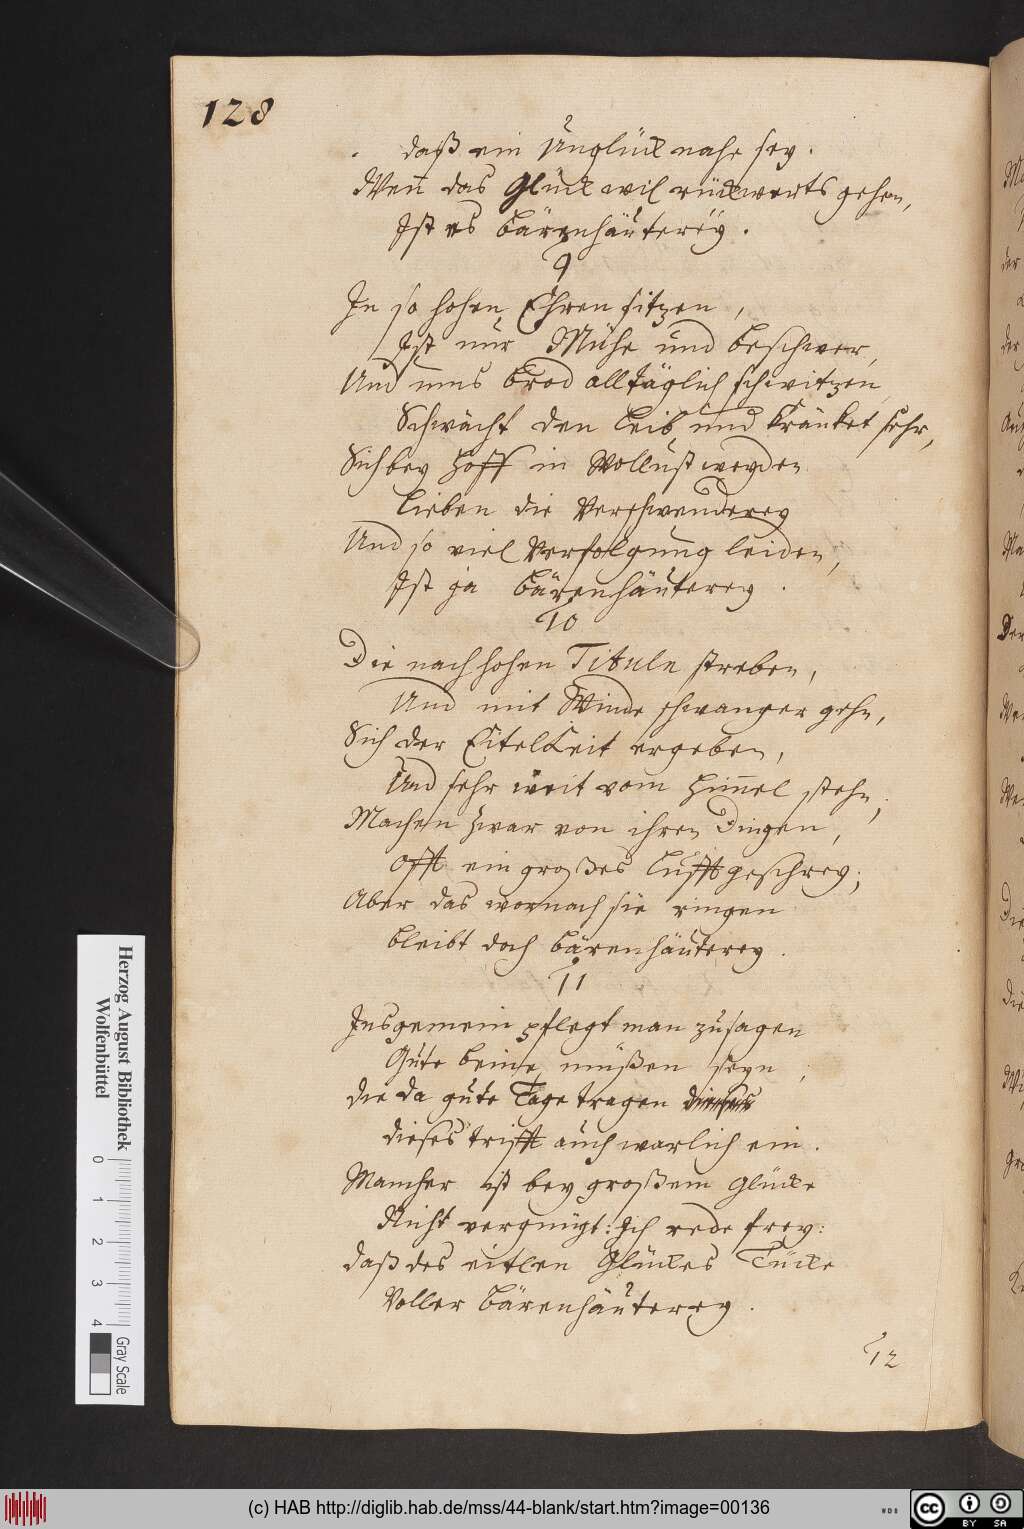 128
daß ein Unglück nahe sey.
Weñ das Glück wil rückwerts gehen,
Ist es bärenhäuterey.
9
In so hohen Ehren sitzen,
Ist nur Mühe und beschwer,
Und ums brod alltäglich schwitzen
Schwächt den Leib und kränket sehr,
Sich bey Hoff in Wollust weyden
Lieben die Verschwenderey
Und so viel Verfolgung leiden,
Ist ja bärenhäuterey.
10
Die nach hohen Tituln streben,
Und mit Winde schwanger gehn,
Sich der Eitelkeit ergeben,
Und sehr weit vom Him̄el stehn,
Machen zwar von ihren Dingen,
Offt ein großes Lufftgeschrey;
Aber das wornach sie ringen
bleibt doch bärenhäuterey.
11
Insgemein pflegt man zusagen
Gute beine müßen seyn,
die da gute Tage tragen
dieses trifft auch warlich ein.
Mancher ist bey großem Glücke
Nicht vergnügt: Ich rede frey:
daß des eitlen Glückes Tücke
Voller bärenhäuterey.
12
Herzog August Bibliothek
Wolfenbüttel
0 1 2 3 4
Gray Scale
(c) HAB http://diglib.hab.de/mss/44-blank/start.htm?image=00136
WDB
cc
BY SA